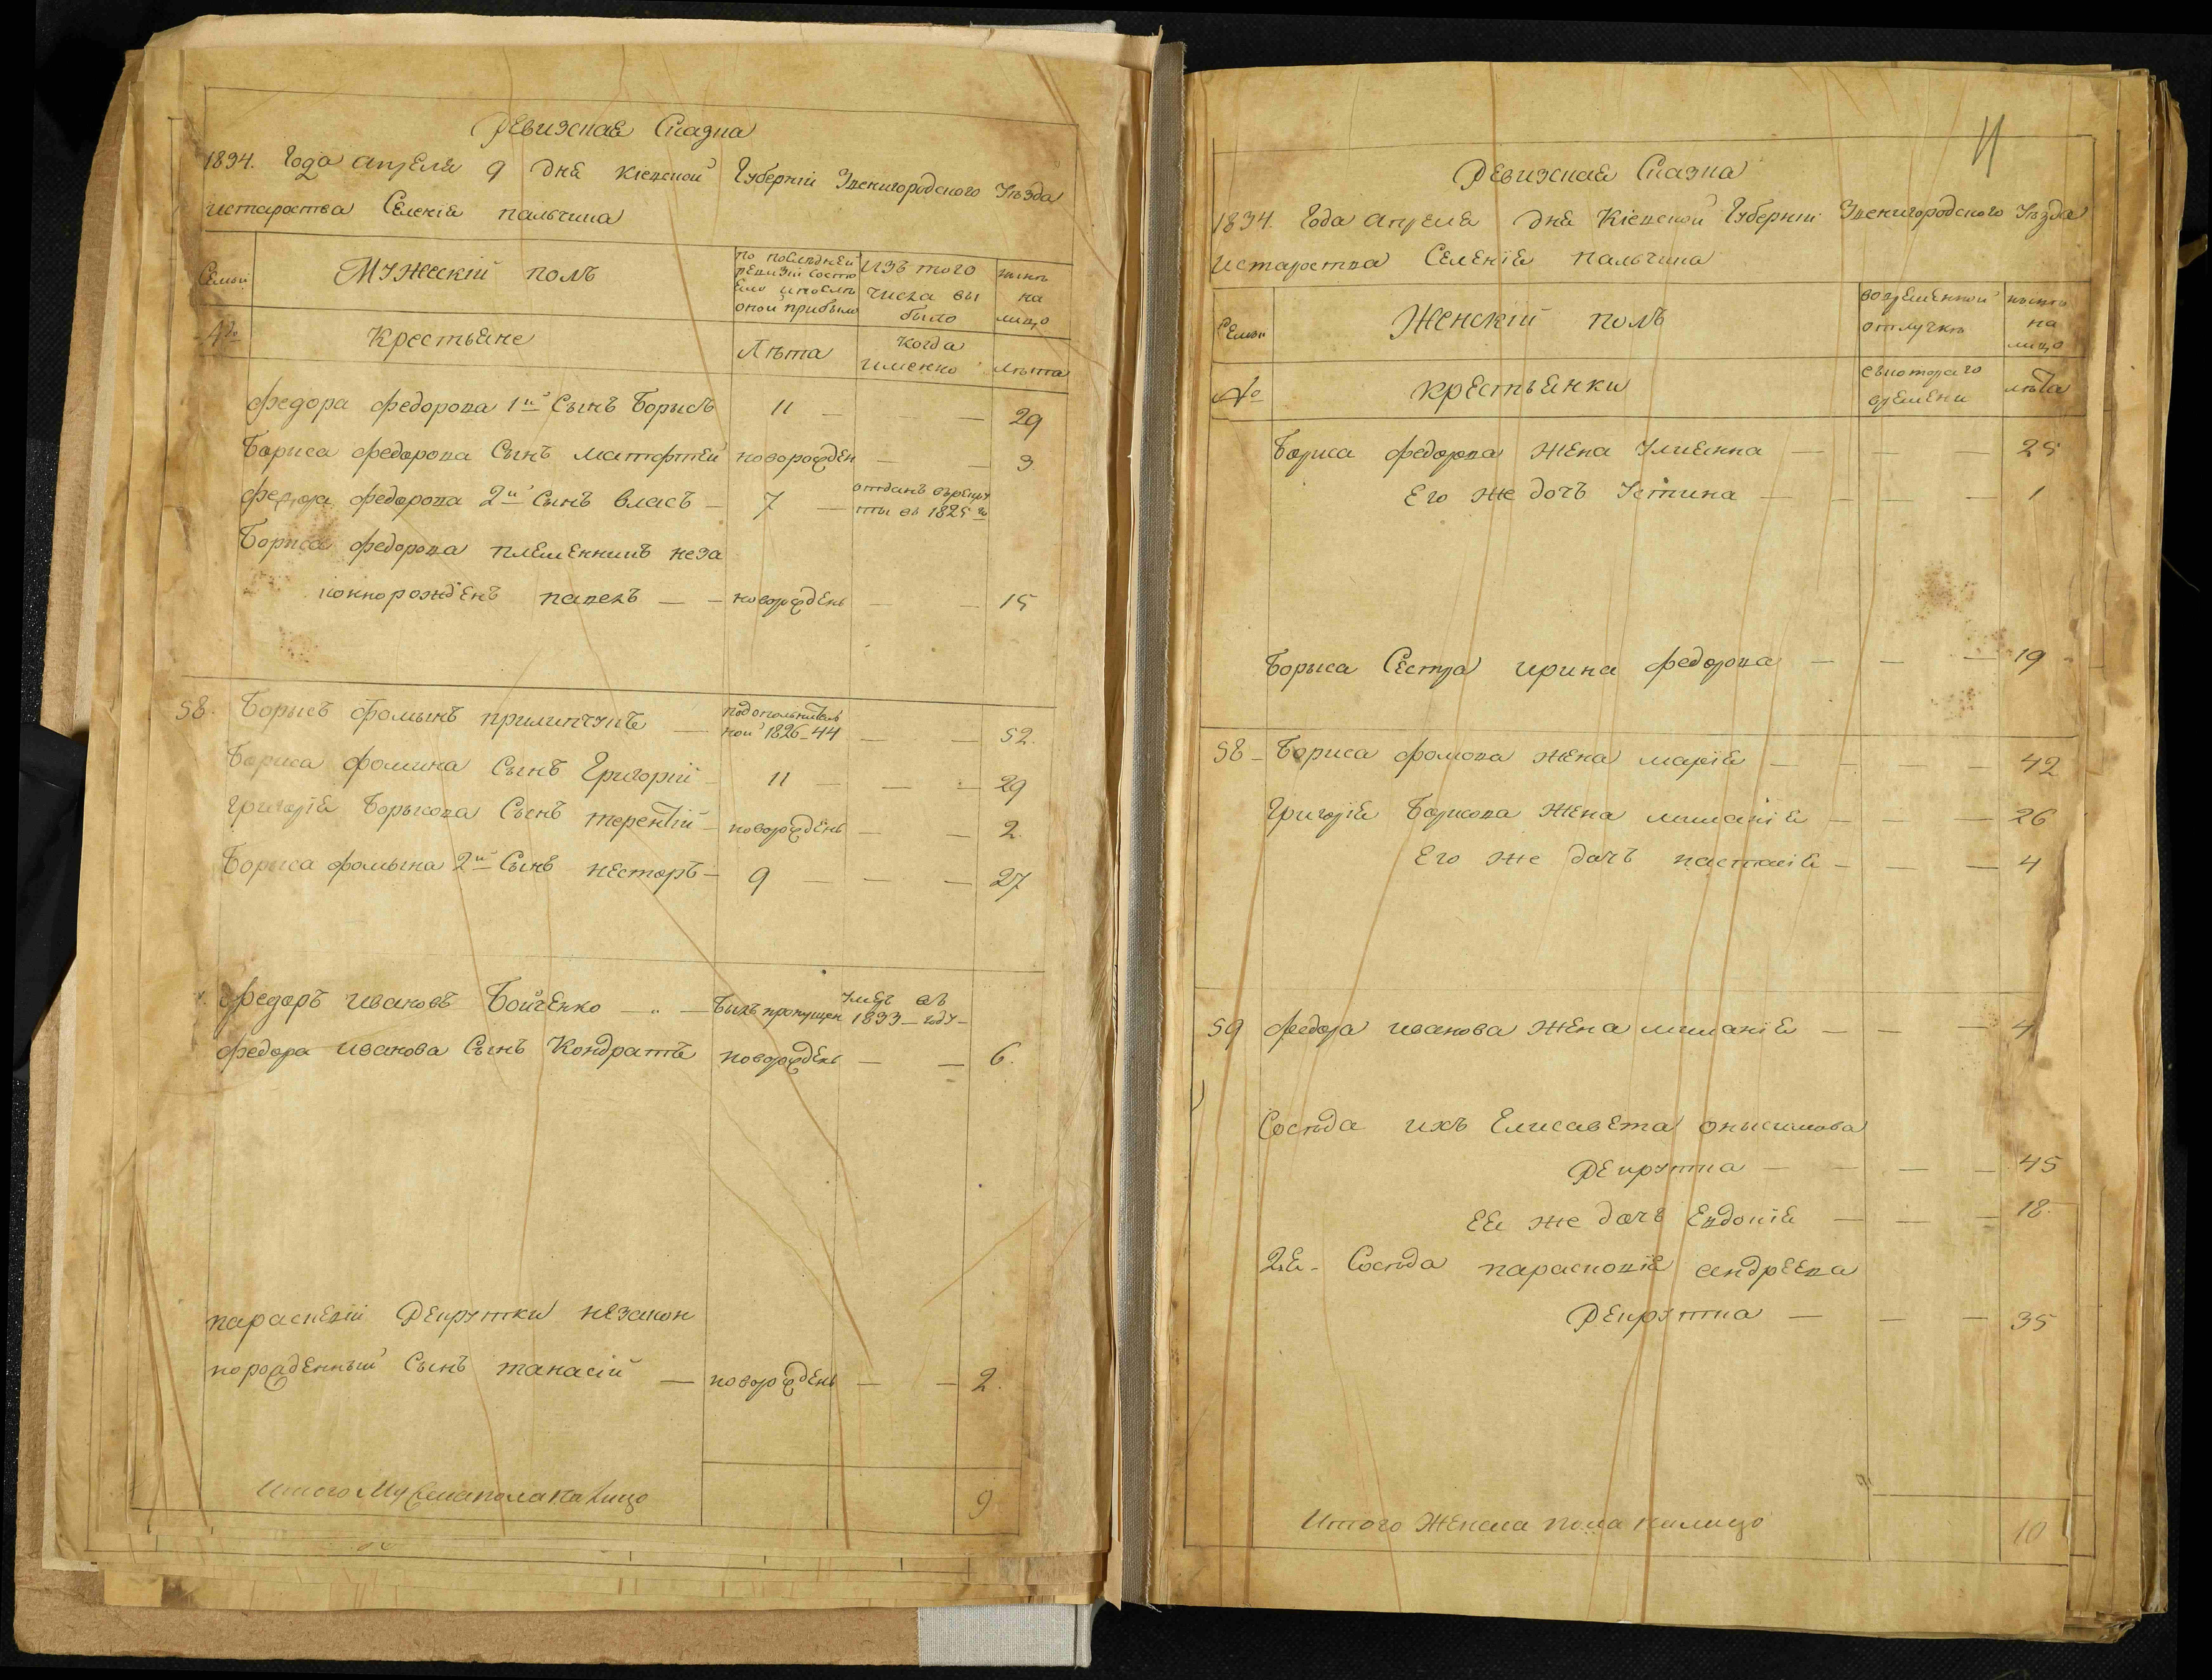 Ревизская Сказка
1834. Года апреля 9 дня Кіевской Губерніи Звенигородского Уѣзда
истароства Селенія пальчика
Семьи
Мужескій полъ
по последней ревизіи состояло и после оной прибыло
Изъ того числа выбыло
ныне на лицо
№
Крестьяне
Лѣта
когда именно
лѣта
федора федорова 1й Сынъ Борысъ 11 — — 29
Бориса федорова Сынъ матфтей новорожден — — 3
федора федорова 2й Сынъ власъ — 7 — отданъ врекруты въ 1825 го
Бориса федорова племенникъ неза
коннорожденъ павелъ — — новорожденъ — — 15
58. Борысъ фомынъ прилипчукъ — подополнительной 1826 — 44 — — 52.
Бориса фомина Сынъ Григорій — 11 — — — 29
григорія Борысова Сынъ терентій — новорожденъ — — 2.
Борыса фомына 2й Сынъ несторъ — 9 — — — 27
федоръ ивановъ Бойченко — „ — Былъ пропущен умеръ въ 1833 — году —
федора иванова Сынъ Кондратъ новорожденъ — — 6.
параскевіи Рекрутки незакон
норожденный Сынъ танасій — новорожденъ — — 2.
Итого Мужеска пола на лицо 9
11
Ревизская Сказка
1834. Года апреля дня Кіевской Губерніи Звенигородского Уѣзда
истароства Селенія пальчика
Семьи
Женскій полъ
вовременной отлучке
ныне на лицо
№
крестьянки
скотораго времени
лѣта
Бориса федорова жена Улиянна — — — 25
Его же дочъ Устина — — — 1
Борыса Сестра ирина федорова — — — 19
58 — Бориса фомова жена марія — — — 42
Григорія Борисова жена миланія — — — 26
Его же дочъ настасія — — — 4
59 федора иванова жена миланія — — — 4
Соседа ихъ Елисавета онысимова
Рекрутка — — — — 45
Ея же дочъ Евдокія — — — 18.
2я — Соседа парасковія андреева
Рекрутка — — — 35
Итого Женска пола налицо 10